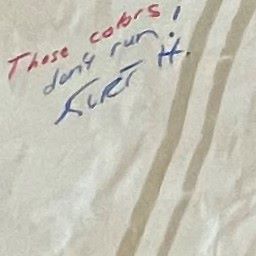 These colors
don't run!
KURT H.